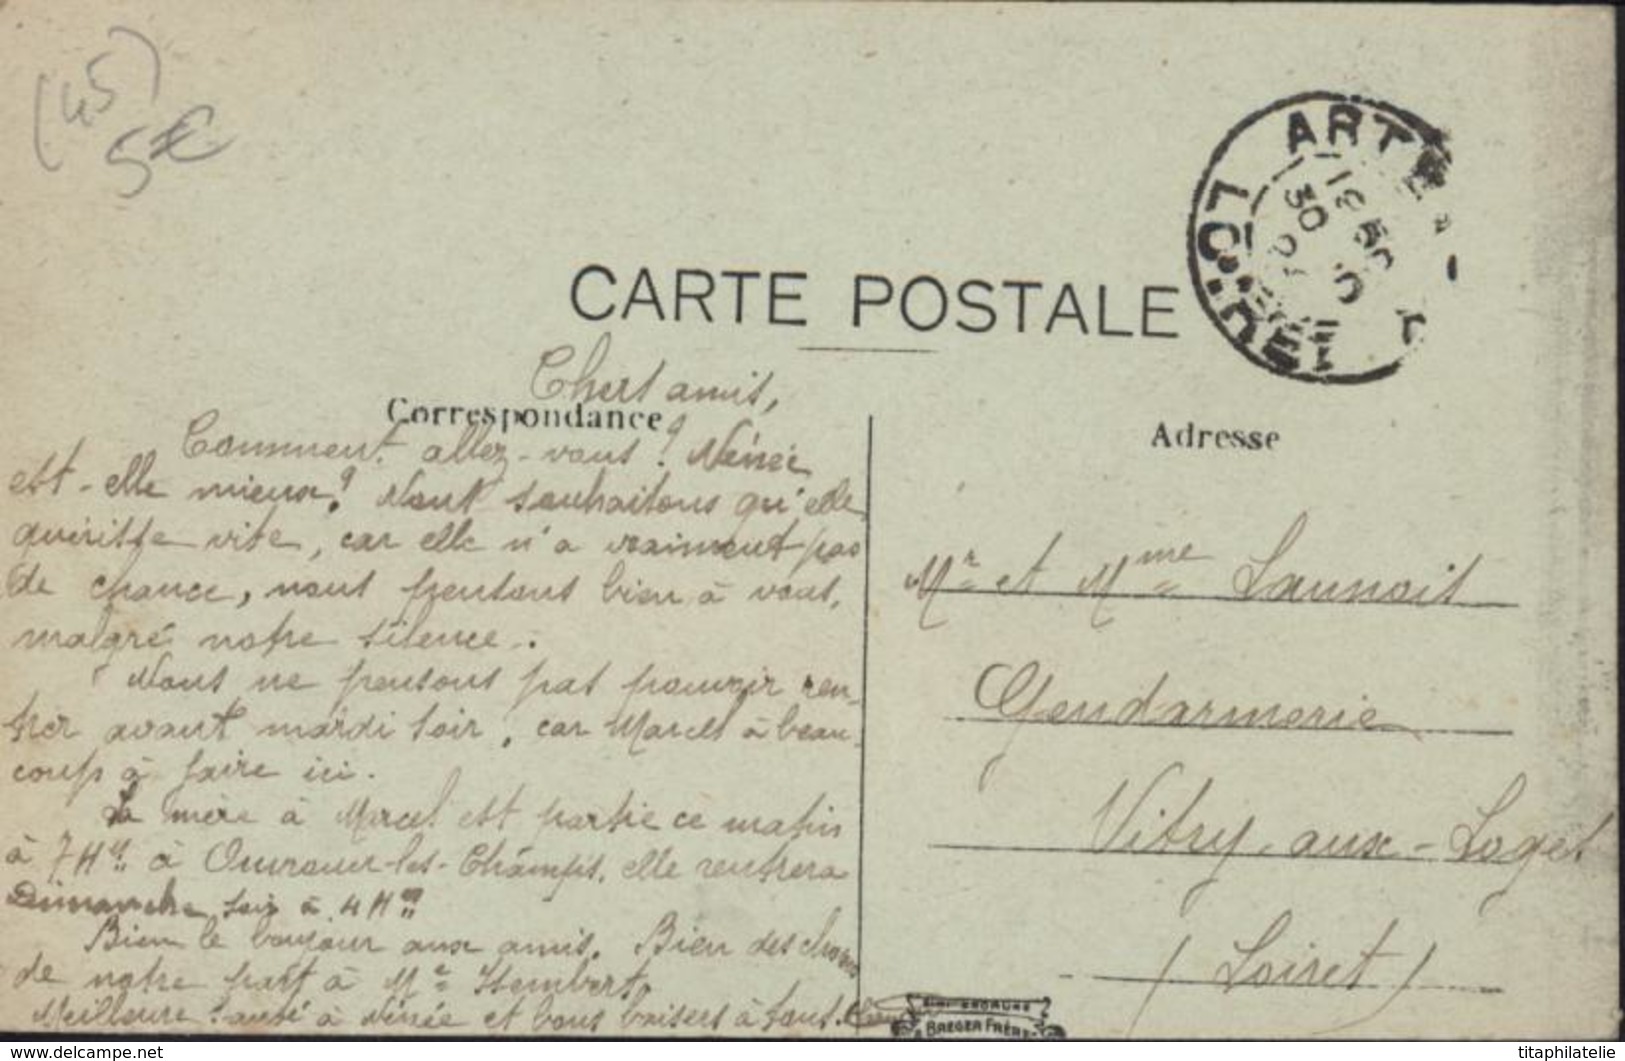 (45)
5€
ARTE
LOIRET
CARTE POSTALE
Chers amis,
Correspondance
Adresse
Comment allez-vous? Nénée
est-elle mieux? Nous souhaitons qu'elle
guérisse vite, car elle n'a vraiment pas
de chance, nous pensons bien à vous,
malgré notre silence.
Nous ne pensons pas pouvoir ren-
trer avant mardi soir, car Marcel à beau-
coup à faire ici.
La mère à Marcel est partie ce matin
à 7Hes à Ouvrouer-les-Champs, elle rentrera
Dimanche soir à 4Hes
Bien le bonjour aux amis. Bien des choses
de notre part à Mr Hembert.
Meilleure santé à Nénée et bons baisers à tous.
Mr et Mme Launois
Gendarmerie
Vitry-aux-Loges
(Loiret)
BAEGER FRÈRES
www.delcampe.net
titaphilatelie